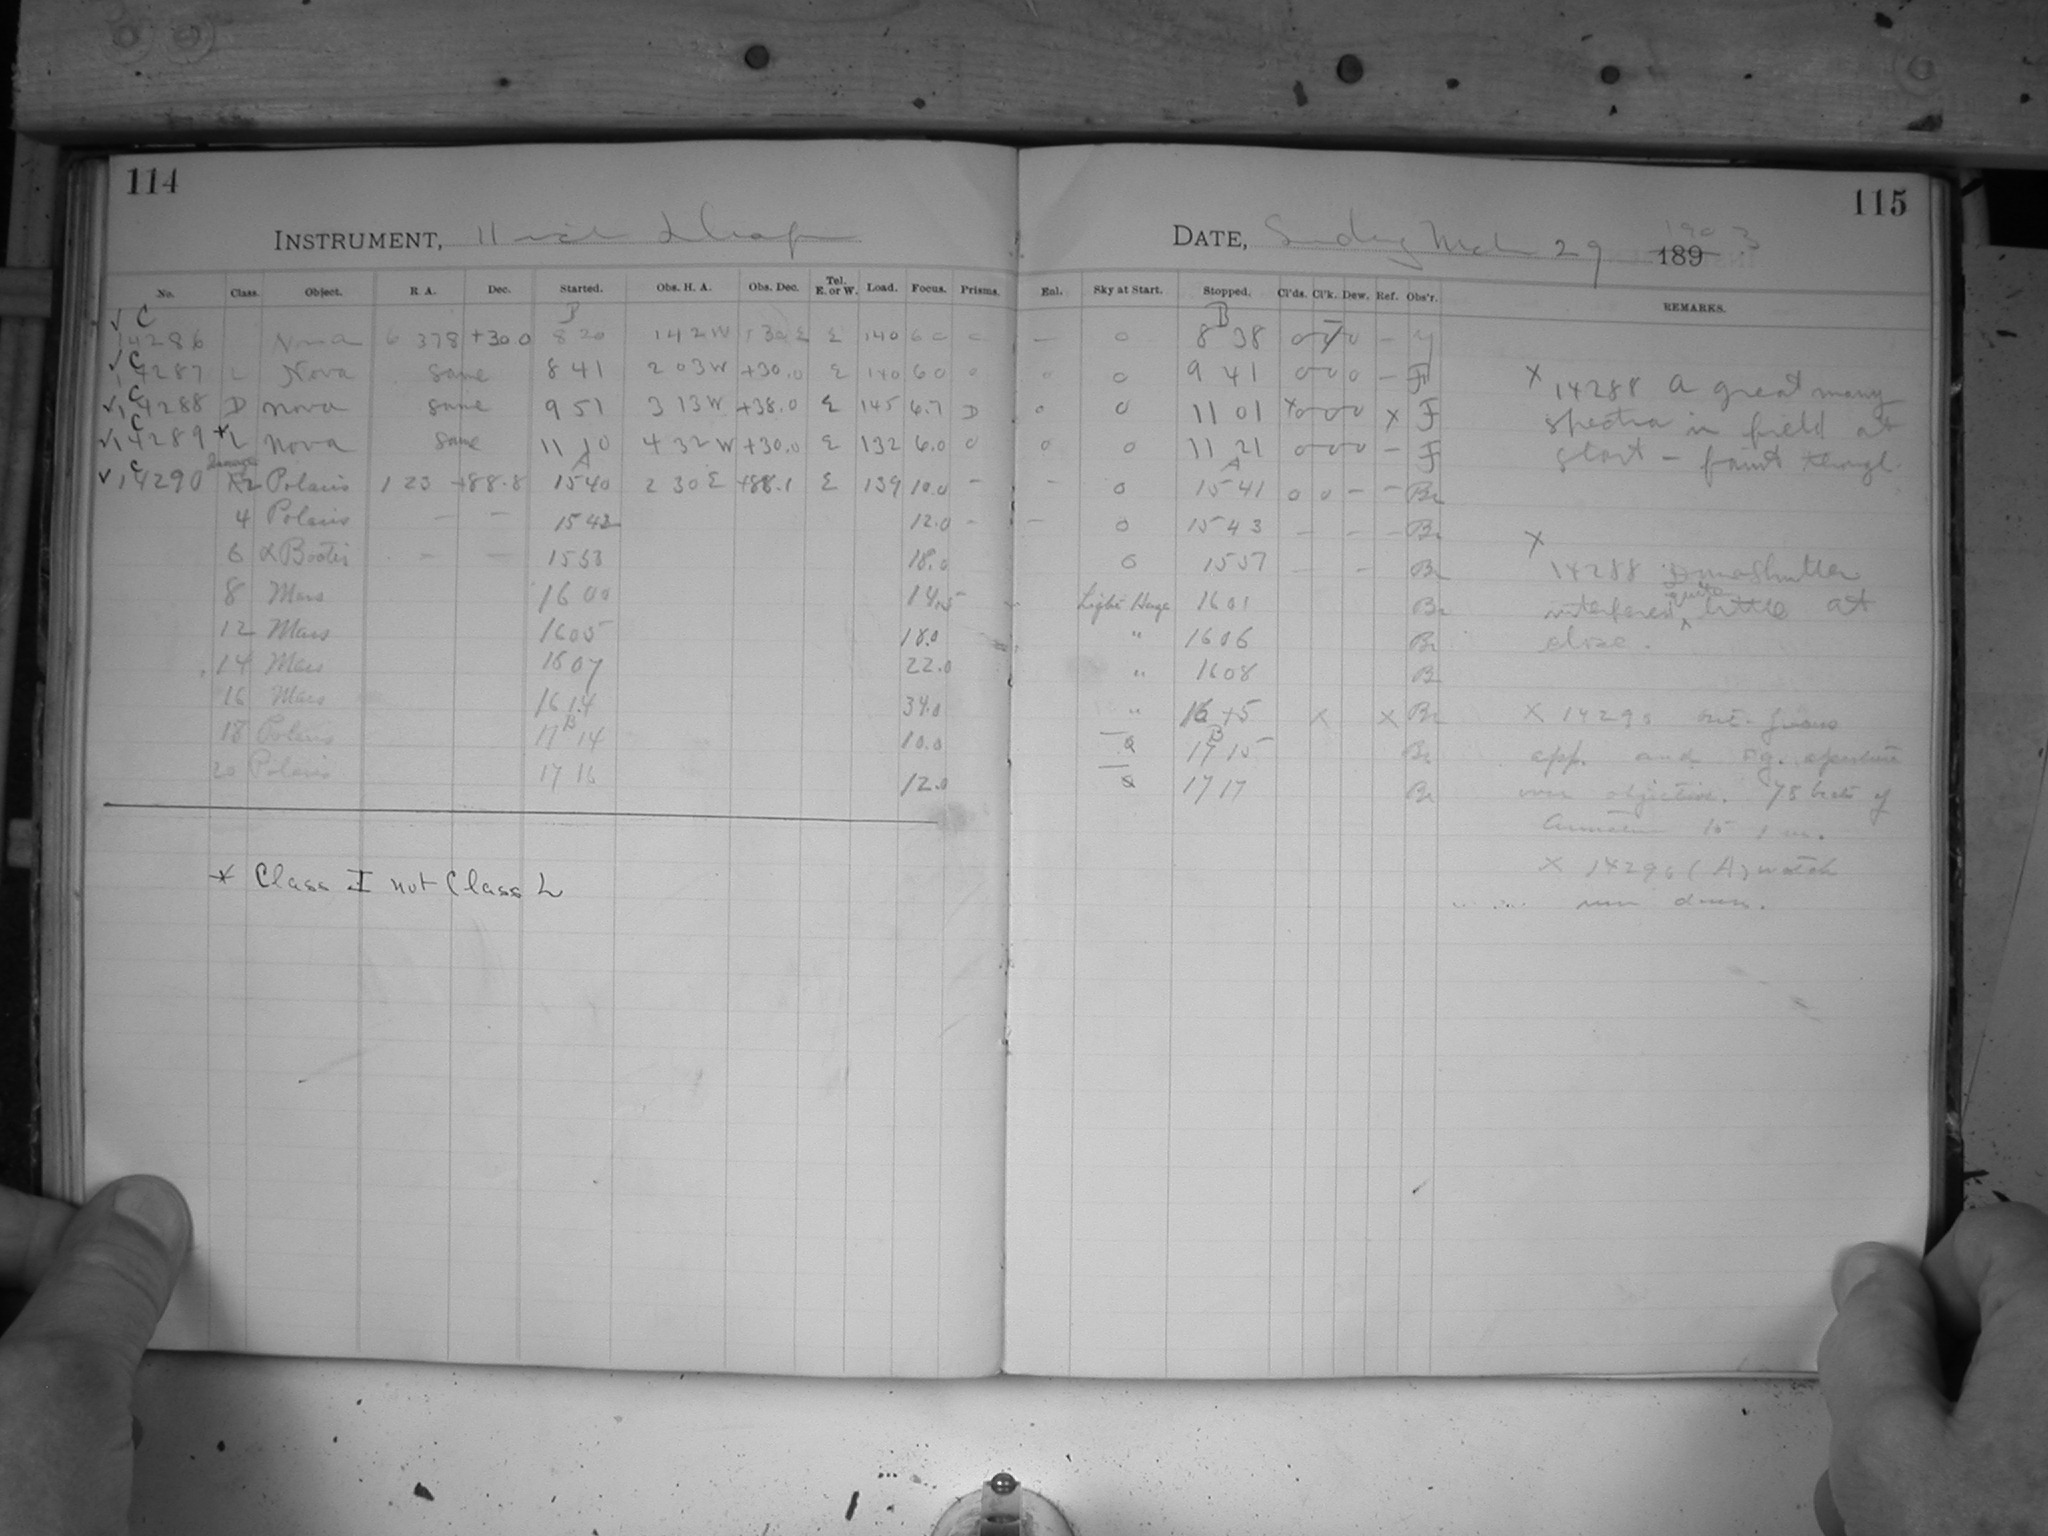 114
115
INSTRUMENT, 11 inch Draper
DATE, Sunday Mch 29 1903 189
No. Class. Object. R. A. Dec. Started. Obs. H. A. Obs. Dec. Tel. E. or W. Load. Focus. Prisms. Enl. Sky at Start. Stopped. Cl'ds. Cl'k. Dew. Ref. Obs'r. REMARKS.
√ C B B
14286 Nova 6 378 +30.0 8 20 1 42 W E 140 6 0 — 0 8 38 0 0 –
√ C
14287 L Nova same 8 41 2 03 W +30.0 E 140 6.0 0 0 0 9 41 0 0 0 – F
√ C
14288 D Nova same 9 51 3 13 W +38.0 E 145 6.7 D 0 0 11 01 x 0 0 0 x F
√ C
14289 * L Nova same 11 10 4 32 W +30.0 E 132 6.0 0 0 0 11 21 0 0 0 – F
√ C A A
14290 R2 Polaris 1 23 +88.8 15 40 2 30 E +88.1 E 139 10.0 – – 0 15 41 0 0 – – Br
4 Polaris – – 15 42 12.0 – – 0 15 43 – – – Br
6 α Bootis – – 15 53 18.0 0 15 57 – – Br
8 Mars 16 00 14.5 – Light Haze 16 01 Br
12 Mars 16 05 18.0 " 16 06 Br
14 Mars 16 07 22.0 " 16 08 Br
16 Mars 16 14 34.0 " 16 15 x x Br
B B
18 Polaris 17 14 10.0 17 15 Br
20 Polaris 17 16 12.0 17 17 Br
* Class I not Class L
x 14288 A great many
spectra in field at
start – faint though.
x
14288 Dome shutter
interferes quite little at
close.
x 14290
app. and sq. aperture
over objective. 75 beats of
1 m.
x 14290 (A) watch
run down.